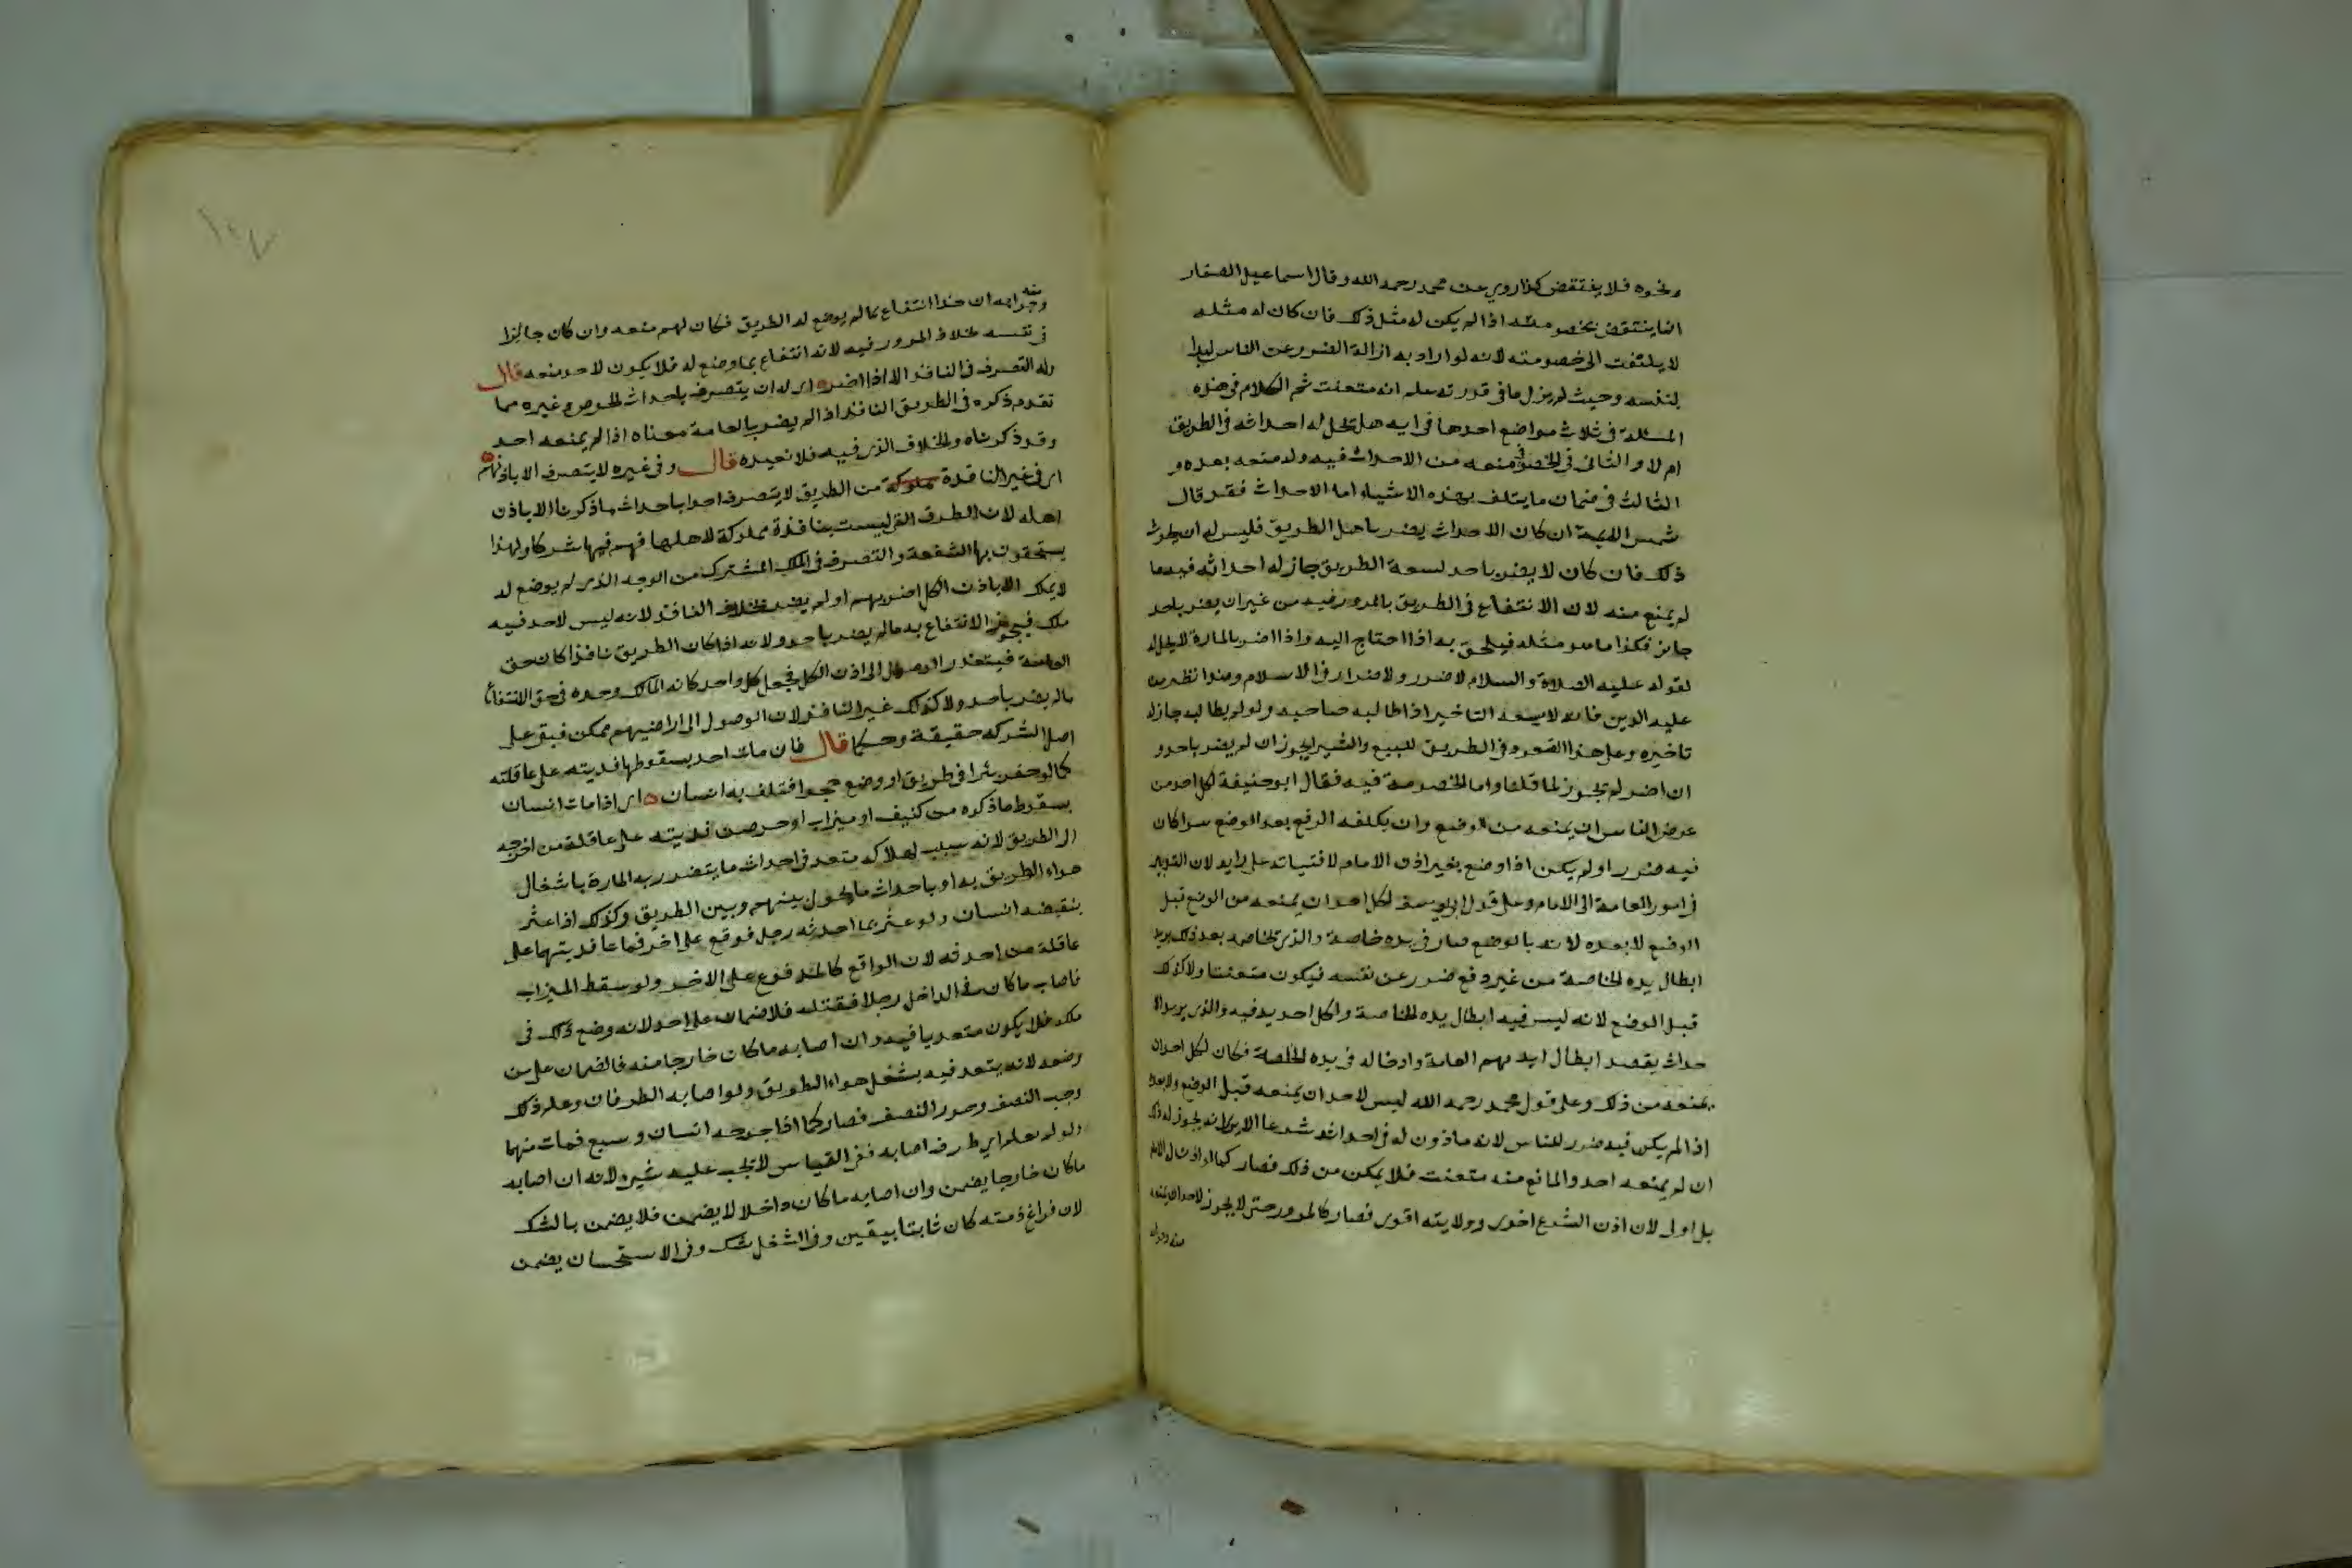 ونحوه فلا ينتقض كذا روي عن محمد رحمه الله وقال اسماعيل الصفار
انما ينتقض بخصومته اذا لم يكن له مثل ذلك فان كان له مثله
لا يلتفت الى خصومته لانه لو اراد به ازالة الضرر عن الناس لبدا
بنفسه وحيث لم يزل ما في قدرته علم انه متعنت ثم الكلام في هذه
المسئلة في ثلاث مواضع احدها في انه هل يحل له احداثه في الطريق
ام لا والثاني في الخصومة في منعه من الاحداث فيه ورفعه بعده و
الثالث في ضمان ما يتلف بهذه الاشياء اما الاحداث فقد قال
شمس الايمة ان كان الاحداث يضر باهل الطريق فليس له ان يحدث
ذلك فان كان لا يضر باحد لسعة الطريق جاز له احداثه فيه ما
لم يمنع منه لان الانتفاع في الطريق بالمرور فيه من غير ان يضر باحد
جائز فكذا ما هو مثله فيلحق به اذا احتاج اليه واذا اضر بالمارة لا يحل له
لقوله عليه الصلاة والسلام لا ضرر ولا ضرار في الاسلام وهذا نظير من
عليه الدين فانه لا يسعه التاخير اذا طالبه صاحبه ولو لم يطالبه جاز له
تاخيره وعلى هذا القعود في الطريق للبيع والشرا يجوز ان لم يضر باحد و
ان اضر لم يجوز لما قلنا واما الخصومة فيه فقال ابو حنيفة لكل احد من
عرض الناس ان يمنعه من الوضع وان يكلفه الرفع بعد الوضع سوا كان
فيه ضرر او لم يكن اذا وضع بغير اذن الامام لافتياته على رايه لان التدبير
في امور العامة الى الامام وعلى قول ابي يوسف لكل احد ان يمنعه من الوضع قبل
الوضع لا بعده لانه بالوضع صار في يده خاصة والذي يخاصمه بعد ذلك يريد
ابطال يده الخاصة من غير دفع ضرر عن نفسه فيكون متعنتا ولا كذلك
قبل الوضع لانه ليس فيه ابطال يده الخاصة ولكل احد يد فيه والذي يريد الا
حداث يقصد ابطال ايديهم العامة وادخاله في يده الخاصة فكان لكل احد ان
يمنعه من ذلك وعلى قول محمد رحمه الله ليس لاحد ان يمنعه قبل الوضع ولا بعده
اذا لم يكن فيه ضرر للناس لانه ماذون له في احداثه شرعا الا يرى انه يجوز له ذلك
ان لم يمنعه احد والمانع منه متعنت فلا يمكن من ذلك فصار كما لو اذن له الامام
بل اولى لان اذن الشرع احرى وولايته اقوى فصار كالمرور حتى لا يجوز لاحد ان يمنعه
منه وجوابه
١٤٧
منه
وجوابه ان هذا انتفاع بما لم يوضع له الطريق فكان لهم منعه وان كان جائزا
في نفسه بخلاف المرور فيه لانه انتفاع بما وضع له فلا يكون لاحد منعه قال
وله التصرف في النافذ الا اذا اضر اي له ان يتصرف باحداث الجرصن وغيره مما
تقدم ذكره في الطريق النافذ اذا لم يضر بالعامة معناه اذا لم يمنعه احد
وقد ذكرناه والخلاف الذي فيه فلا نعيده قال وفي غيره لا يتصرف الا باذنهم
اي في غير النافذة من الطريق لا يتصرف احد باحداث ما ذكرنا الا باذن
اهله لان الطرق التي ليست بنافذة مملوكة لاهلها فهم فيها شركا ولهذا
يستحقون بها الشفعة والتصرف في الملك المشترك من الوجه الذي لم يوضع له
لا يملك الا باذن الكل اضر بهم او لم يضر بخلاف النافذ لانه ليس لاحد فيه
ملك فيجوز الانتفاع به ما لم يضر باحد ولانه اذا كان الطريق نافذا كان حق
العامة فيتعذر الوصول الى اذن الكل فجعل كل واحد كانه المالك وحده في حق الانتفاع
ما لم يضر باحد ولا كذلك غير النافذ لان الوصول الى اراضيهم ممكن فبقي على
اصل الشركة حقيقة وحكما قال فان مات احد بسقوطها فديته على عاقلته
كما لو حفر بئرا في طريق او وضع حجرا فتلف به انسان اي اذا مات انسان
بسقوط ما ذكره من كنيف او ميزاب او جرصن فديته على عاقلة من اخرجه
الى الطريق لانه سبب لهلاكه متعد في احداث ما يتضرر به المارة باشغال
هواء الطريق به او باحداث ما يحول بينهم وبين الطريق وكذلك اذا عثر
بنقضه انسان ولو عثر بما احدثه رجل فوقع على اخر فماتا فديتهما على
عاقلة من احدثه لان الواقع كالمدفوع على الاخر ولو سقط الميزاب
فاصاب ما كان في الداخل رجلا فقتله فلا ضمان على احد لانه وضع ذلك في
ملكه فلا يكون متعديا فيه وان اصابه ما كان خارجا منه فالضمان على من
وضعه لانه يتعد فيه بشغل هواء الطريق ولو اصابه الطرفان وعلم ذلك
وجب النصف وهدر النصف فصار كما اذا جرحه انسان وسبع فمات منهما
ولو لم يعلم اي طرف اصابه ففي القياس لا تجب عليه شيء لانه ان اصابه
ما كان خارجا يضمن وان اصابه ما كان داخلا لا يضمن فلا يضمن بالشك
لان فراغ ذمته كان ثابتا بيقين وفي الشغل شك وفي الاستحسان يضمن